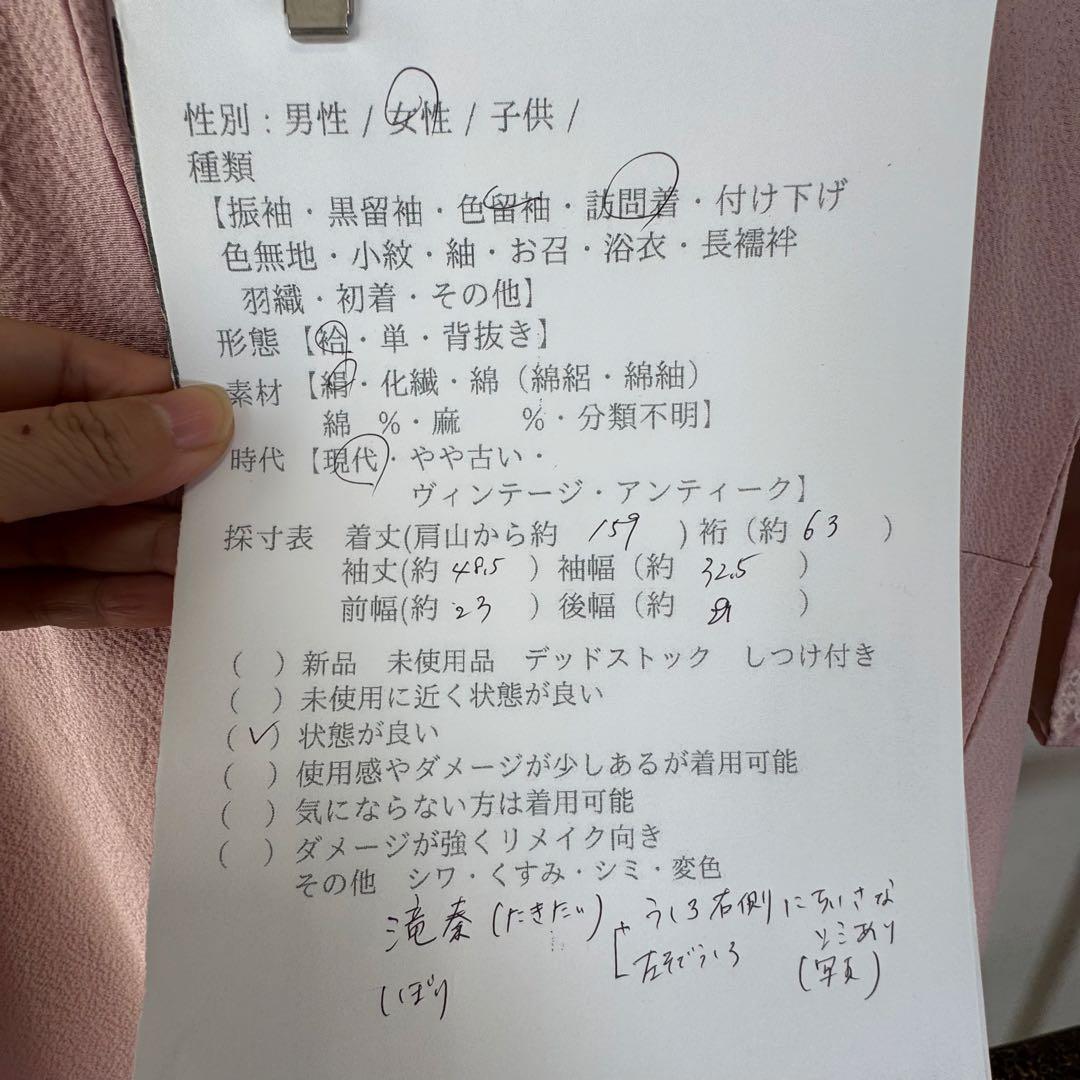 性別：男性 / 女性 / 子供 /
種類
【振袖・黒留袖・色留袖・訪問着・付け下げ
色無地・小紋・紬・お召・浴衣・長襦袢
羽織・初着・その他】
形態【袷・単・背抜き】
素材【絹・化繊・綿（綿絽・綿紬）
綿　%・麻　　%・分類不明】
時代【現代・やや古い・
ヴィンテージ・アンティーク】
採寸表　着丈(肩山から約　159　) 裄（約 63　）
袖丈(約 48.5　) 袖幅（約　32.5　）
前幅(約 23　) 後幅（約　　）
(　) 新品　未使用品　デッドストック　しつけ付き
(　) 未使用に近く状態が良い
(✓) 状態が良い
(　) 使用感やダメージが少しあるが着用可能
(　) 気にならない方は着用可能
(　) ダメージが強くリメイク向き
その他　シワ・くすみ・シミ・変色
滝泰(たきたい) うしろ右側にちいさな
左そでうしろ シミあり
(写真)
しぼり